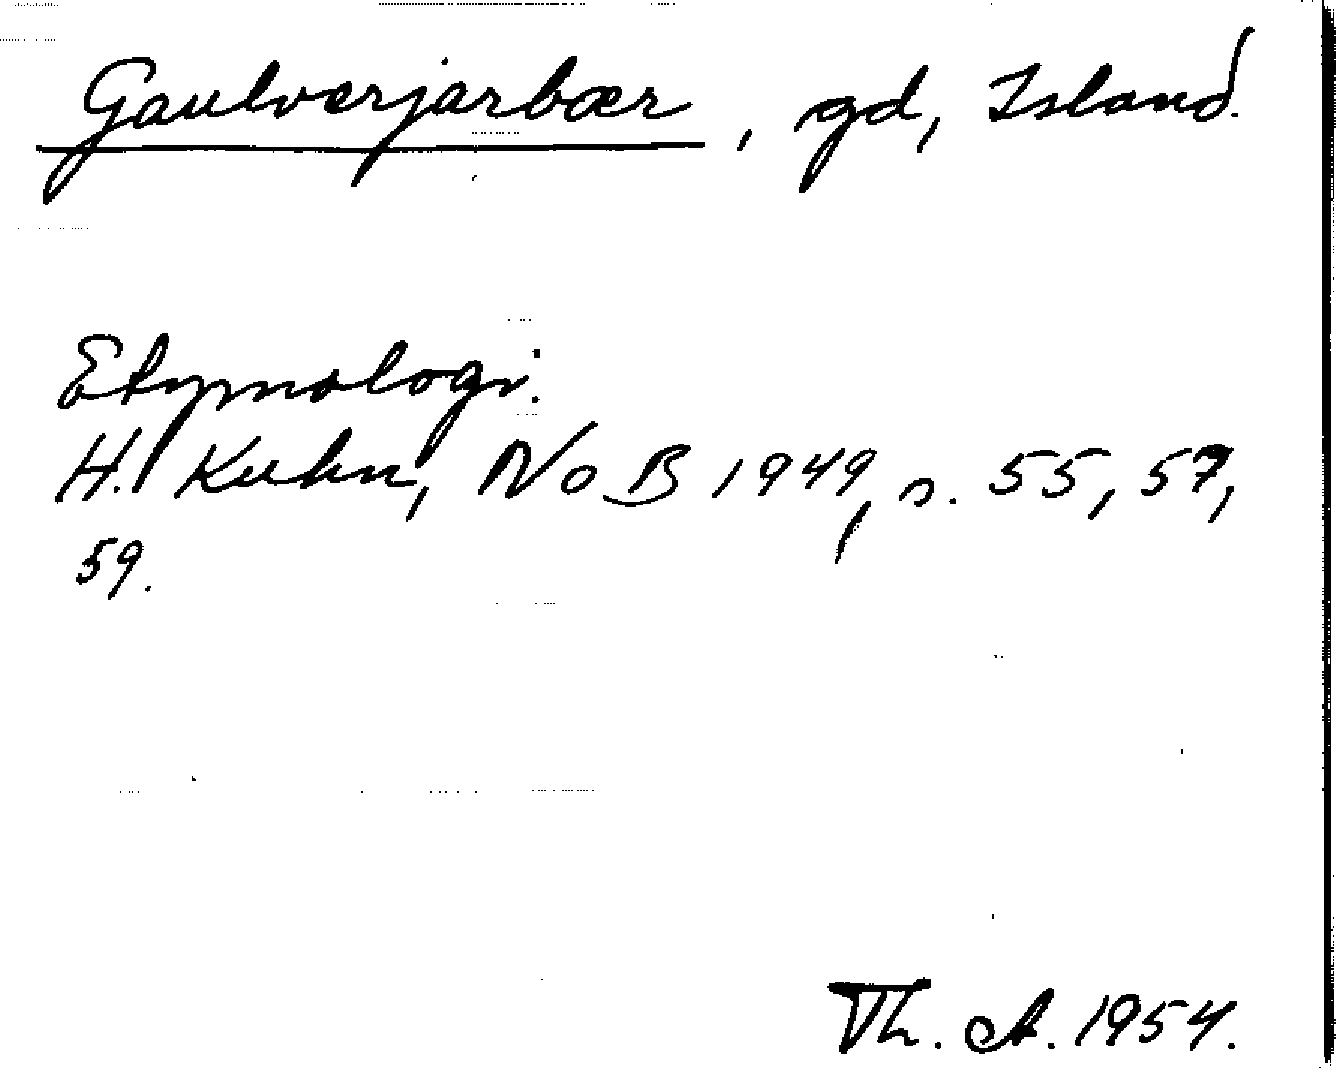 Gaulverjarbær, gd, Island.
Etymologi:
H. Kuhn, NoB 1949, s. 55, 57,
59.
Th. A. 1954.